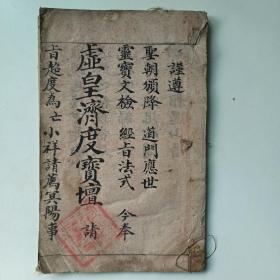 謹遵
聖朝頒降 道門應世
靈寶文檢 經旨法式 今奉
虛皇濟度寶壇 請
旨超度為亡小祥請薦冥陽事